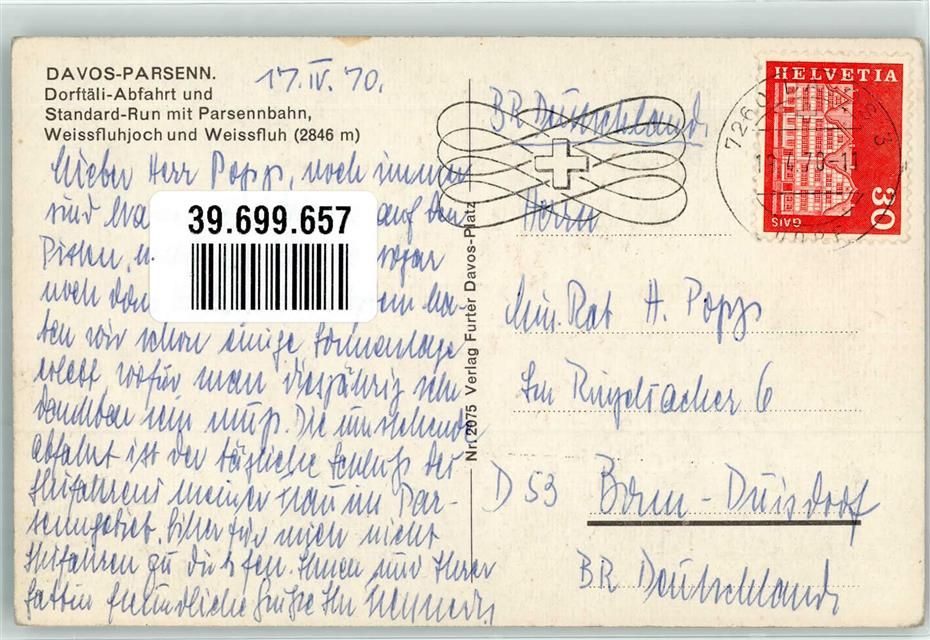 DAVOS-PARSENN.
Dorftäli-Abfahrt und
Standard-Run mit Parsennbahn,
Weissfluhjoch und Weissfluh (2846 m)
17. IV. 70.
Lieber Herr Popp, noch immer
sind auf den
Pisten, sogar
noch ha-
ben wir schon einige Sonnentage
erlebt, wofür man diesjährig sehr
dankbar sein muß. Die umstehende
Abfahrt ist der tägliche Schluß des
Skifahrens meiner Frau im Par-
senngebiet. Bitter für mich nicht
Skifahren zu dürfen. Ihnen und Ihrer
Gattin freundliche Grüße Ihr
39.699.657
Nr. 2075 Verlag Furter Davos-Platz
HELVETIA
GAIS
30
7260
BR Deutschland
Herrn
Min. Rat H. Popp
Im Ringelsacker 6
D 53 Bonn-Duisdorf
BR Deutschland